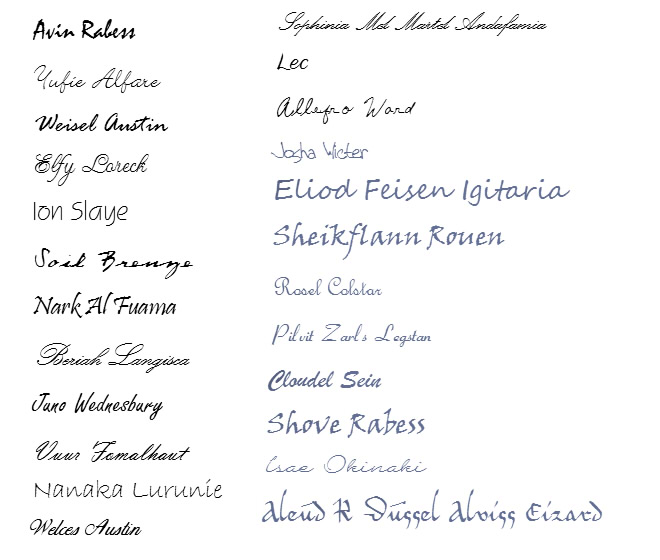 Avin Rabess
Yufie Alfare
Weisel Austin
Elfy Loreck
Ion Slaye
Soil Brenze
Nark Al Fuama
Beriah Langisca
Juno Wednesbury
Vuur Fomalhaut
Nanaka Lurunie
Welces Austin
Sophinia Mel Martel Andafamia
Lec
Allefro Word
Josha Wicter
Eliod Feisen Igitaria
Sheikflann Rouen
Rosel Colstar
Pilvit Zarls Legstan
Cloudel Sein
Shove Rabess
Isae Okinaki
Aleud K Dussel Alviss Eizard